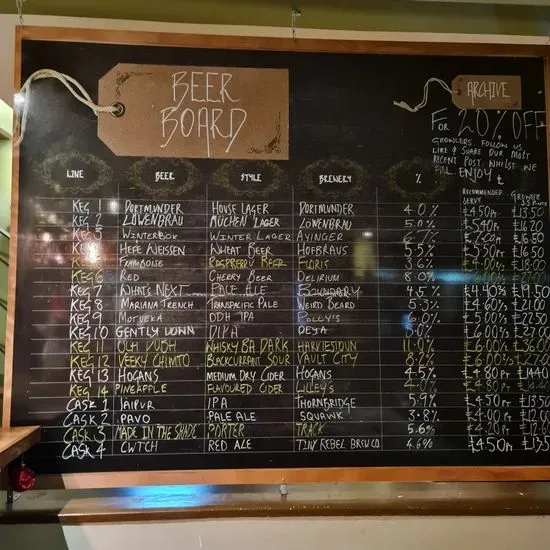 BEER
BOARD
ARCHIVE
FOR 20% OFF
GROWLERS FOLLOW US
LIKE & SHARE OUR MOST
RECENT POST WHILST WE
FILL ENJOY
LINE BEER STYLE BREWERY % RECOMMENDED SERVE GROWLER
KEG 1 DORTMUNDER HOUSE LAGER DORTMUNDER 4.0% £4.50PT £13.50
KEG 2 LÖWENBRAU MÜCHEN LAGER LÖWENBRAU 5.0% £5.40PT £16.20
WINTERBOK WINTER LAGER AYINGER £16.50
KEG HEFE WEISSEN WHEAT BEER HOFBRAUS
FRAMBOISE RASPBERRY BEER FLORIS
KEG 6 RED CHERRY BEER DELIRIUM 8.0%
KEG 7 WHAT'S NEXT PALE ALE 4.5% £19.50
KEG 8 MARIANA TRENCH TRANSPACIFIC PALE WEIRD BEARD 5.3% £4.60PT £21.00
KEG 9 MOTUEKA DDH IPA POLLY'S 6.0% £22.50
KEG 10 GENTLY DOWN DIPA DEYA 8.0%
KEG 11 OLA DUBH WHISKY BA DARK HARVIESTOUN 11.0%
KEG 12 VEEKY CHIMTO BLACKCURRANT SOUR VAULT CITY
KEG 13 HOGANS MEDIUM DRY CIDER HOGANS 4.5% £4.80PT £14.40
KEG 14 PINEAPPLE FLAVOURED CIDER LILLEY'S 4.0%
CASK 1 JAIPUR IPA THORNBRIDGE 5.9% £4.50PT £13.50
CASK 2 PAVO PALE ALE SQUAWK 3.8% £4.00PT
CASK 3 MADE IN THE SHADE PORTER TRACK 5.6% £4.20PT
CASK 4 CWTCH RED ALE TINY REBEL BREW CO. 4.6% £4.50PT